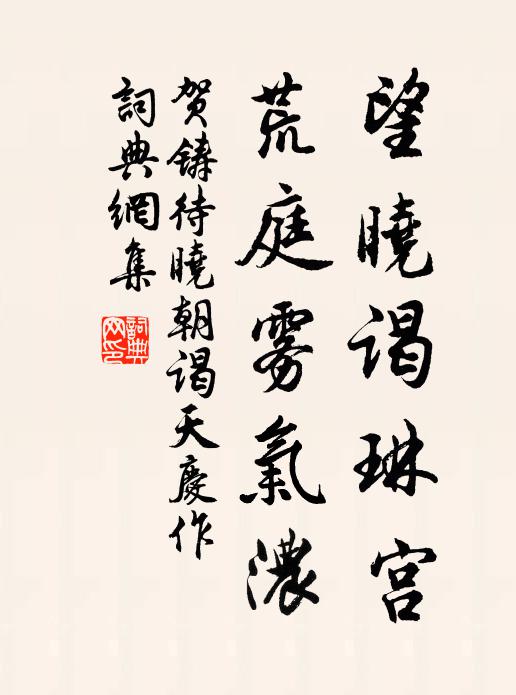 望曉謁琳宮
荒庭霧氣濃
贺鑄待曉朝謁天慶作
詞典網集
詞典網印